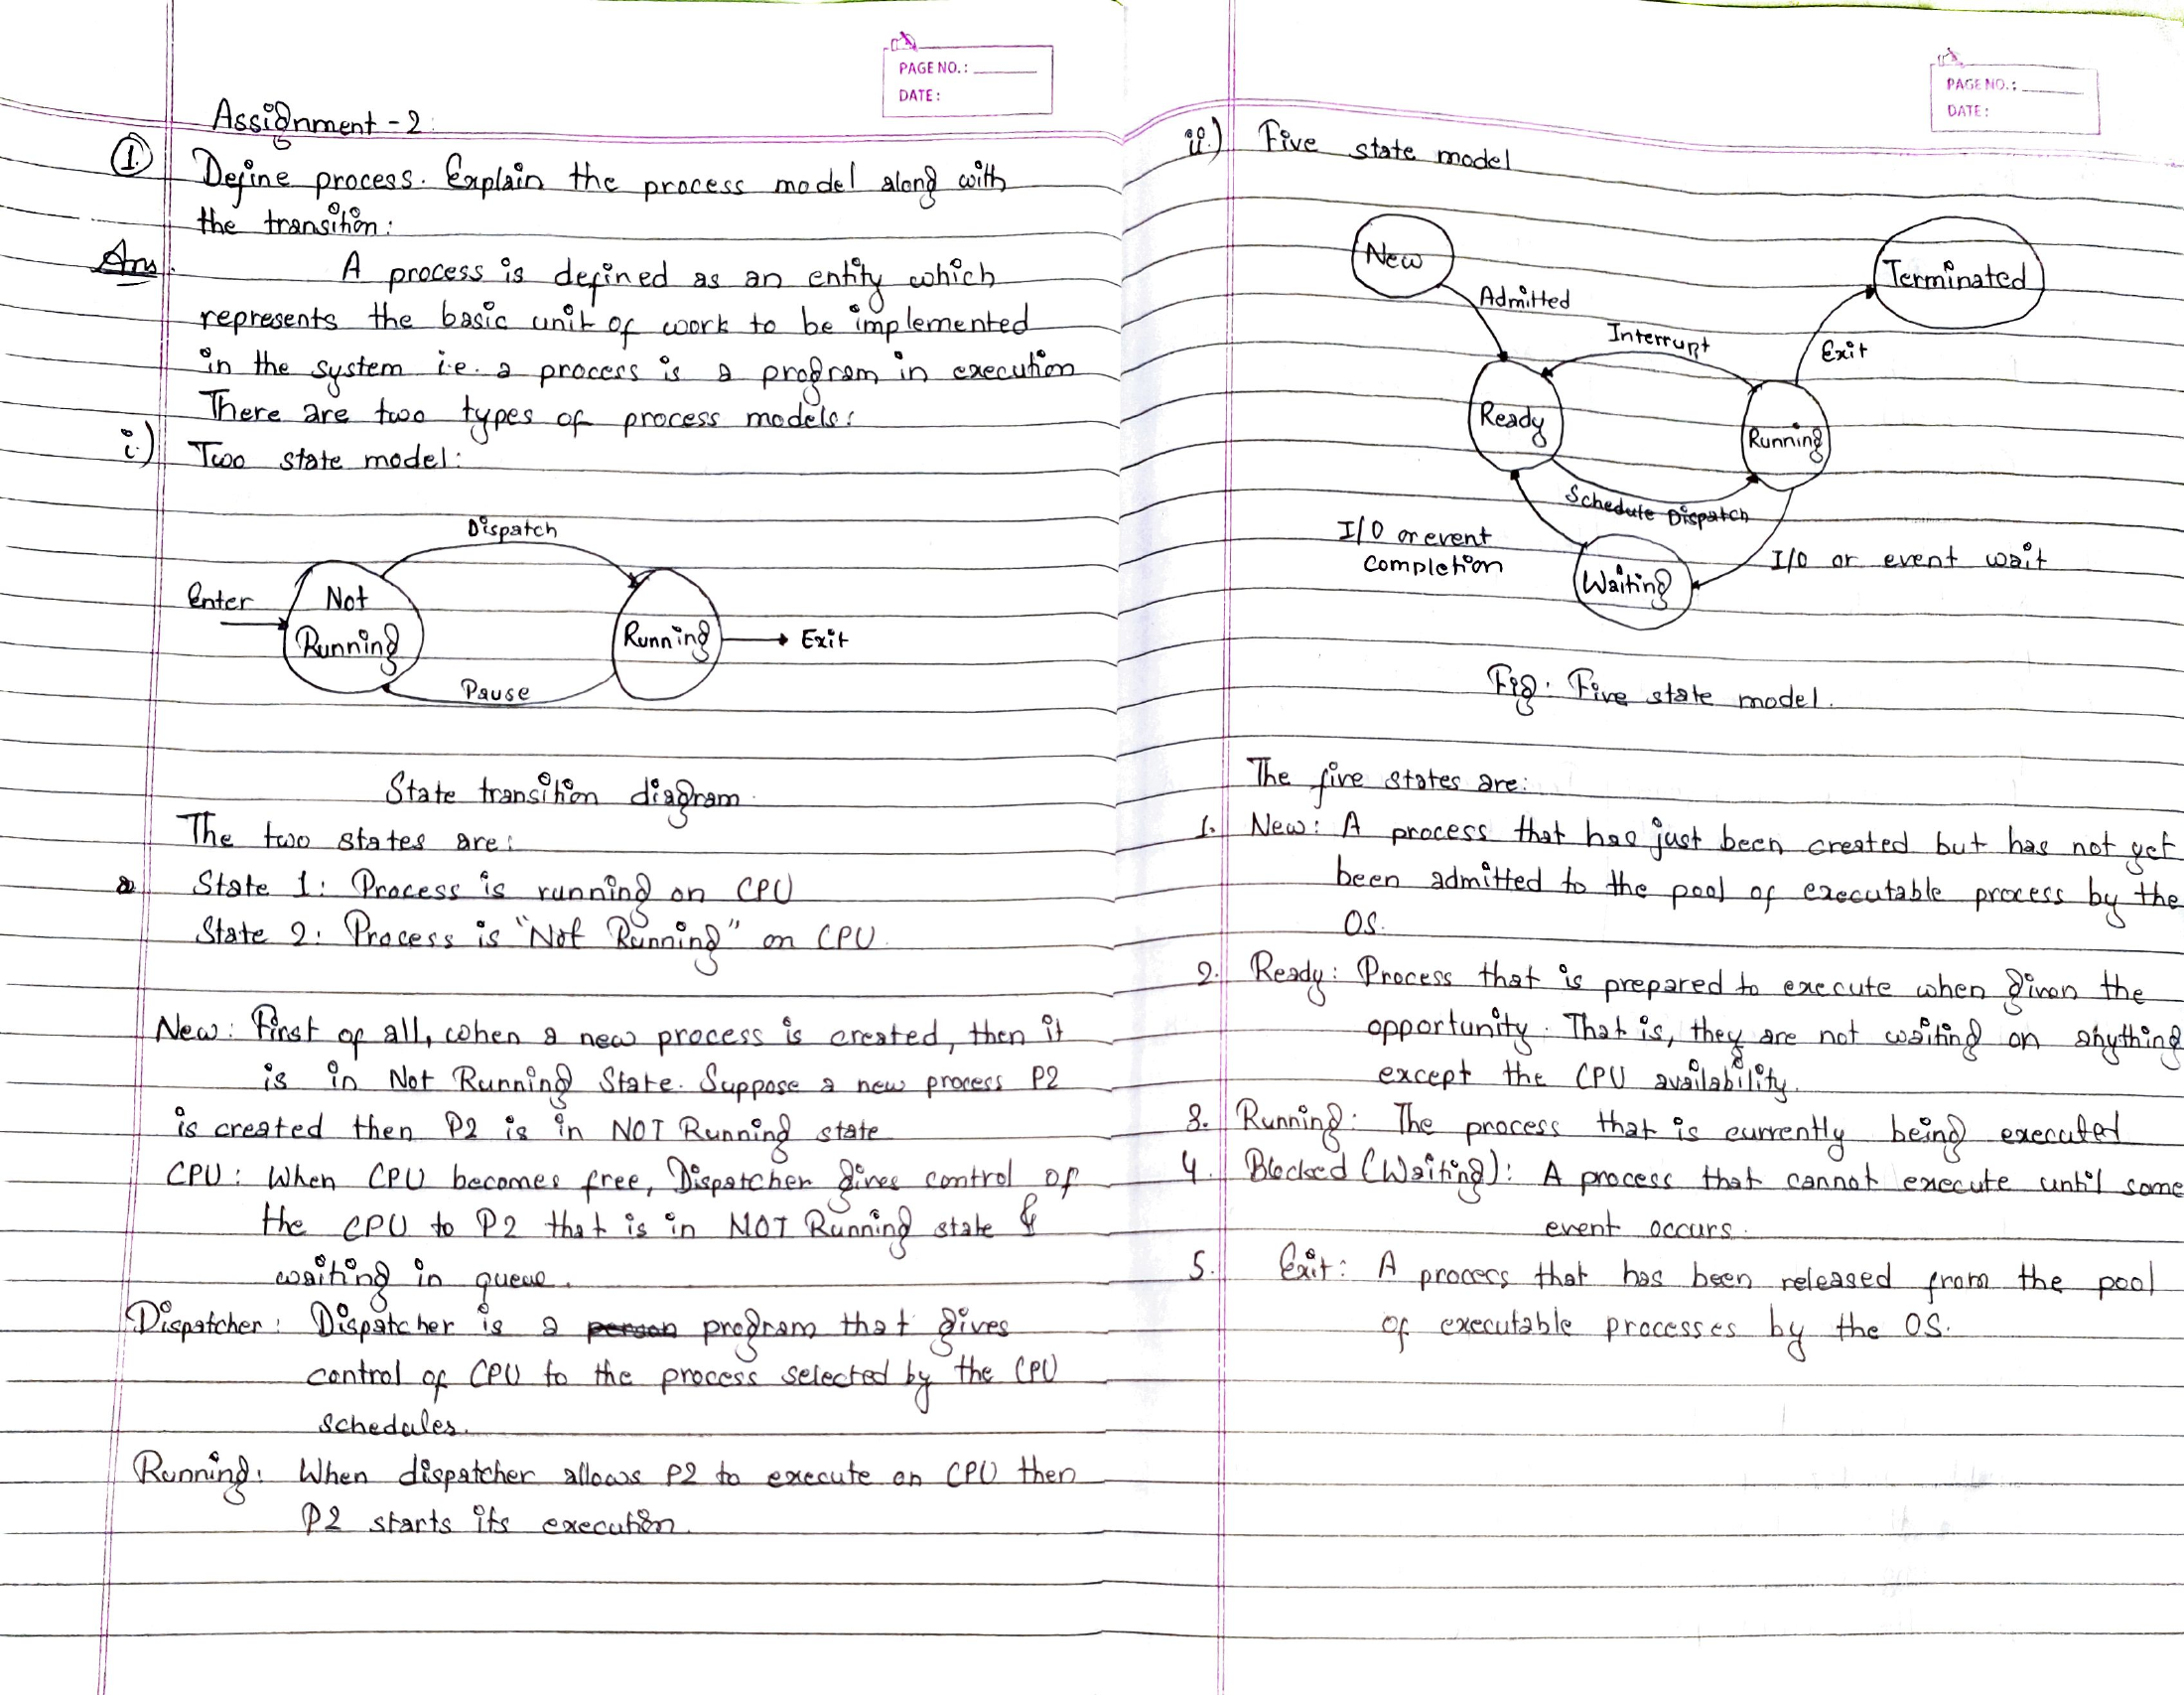 PAGE NO.:
DATE:
Assignment - 2
1. Define process. Explain the process model along with
the transition:
Ans. A process is defined as an entity which
represents the basic unit of work to be implemented
in the system i.e. a process is a program in execution
There are two types of process models:
i.) Two state model:
Dispatch
Enter
Not
Running
Running
Exit
Pause
State transition diagram.
The two states are:
State 1: Process is running on CPU
State 2: Process is "Not Running" on CPU.
New: First of all, when a new process is created, then it
is in Not Running State. Suppose a new process P2
is created then P2 is in NOT Running state
CPU: When CPU becomes free, Dispatcher gives control of
the CPU to P2 that is in NOT Running state &
waiting in queue.
Dispatcher: Dispatcher is a person program that gives
control of CPU to the process selected by the CPU
schedules.
Running: When dispatcher allows P2 to execute on CPU then
P2 starts its execution.
PAGE NO.:
DATE:
ii.) Five state model
New
Terminated
Admitted
Interrupt
Exit
Ready
Running
Schedule Dispatch
I/O or event
completion
I/O or event wait
Waiting
Fig: Five state model.
The five states are:
1. New: A process that has just been created but has not yet
been admitted to the pool of executable process by the
OS.
2. Ready: Process that is prepared to execute when given the
opportunity. That is, they are not waiting on anything
except the CPU availability.
3. Running: The process that is currently being executed
4. Blocked (Waiting): A process that cannot execute until some
event occurs.
5. Exit: A process that has been released from the pool
of executable processes by the OS.